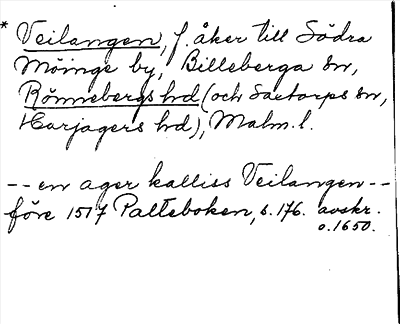 * Veilangen, f. åker till Södra
Möinge by, Billeberga sn,
Rönnebergs hd (och Saxtorps sn,
Harjagers hd), Malm. l.
-- en ager kalliss Veilangen --
före 1517 Palteboken, s. 176. avskr.
o. 1650.